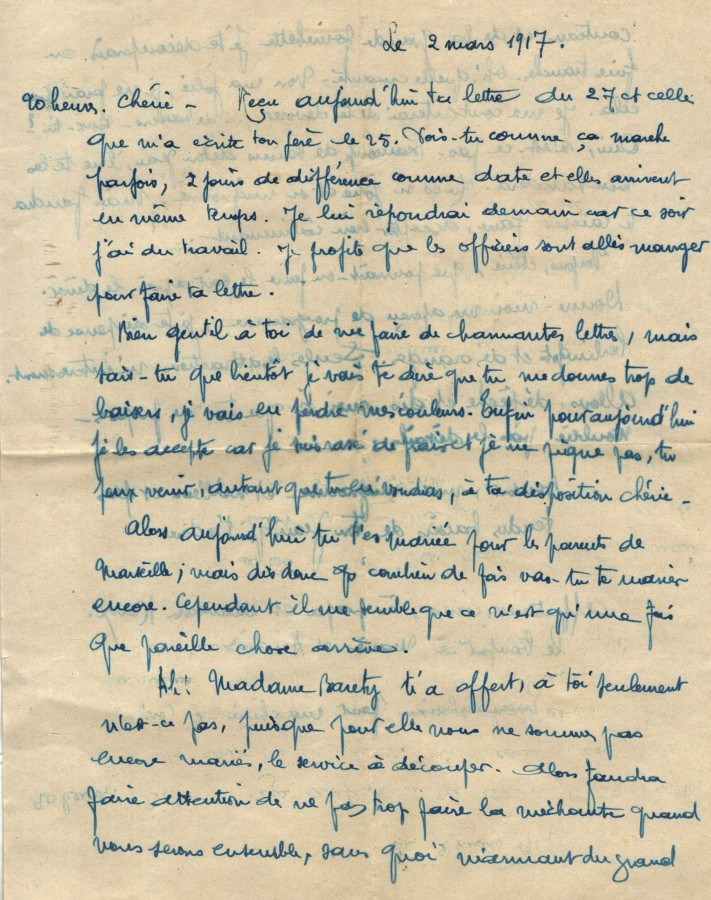 Le 2 mars 1917.
20 heures. Chérie – Reçu aujourd'hui ta lettre du 27 et celle
que m'a écrite ton père le 25. Vois-tu comme ça marche
parfois, 2 jours de différence comme date et elles arrivent
en même temps. Je lui répondrai demain car ce soir
j'ai du travail. Je profite que les officiers sont allés manger
pour faire ta lettre.
Bien gentil à toi de me faire de charmantes lettres, mais
sais-tu que bientôt je vais te dire que tu me donnes trop de
baisers, je vais en perdre mes couleurs. Enfin pour aujourd'hui
je les accepte car je suis rasé de frais et je ne pique pas, tu
peux venir, autant que tu en voudras, à ta disposition chérie –
Alors aujourd'hui tu t'es mariée pour les parents de
Marseille; mais dis donc combien de fois vas-tu te marier
encore. Cependant il me semble que ce n'est qu'une fois
que pareille chose arrive.
Ah! Madame Barety t'a offert, à toi seulement
n'est-ce pas, puisque pour elle nous ne sommes pas
encore mariés, le service à découper. Alors faudra
faire attention de ne pas trop faire la méchante quand
nous serons ensemble, sans quoi m'armant du grand